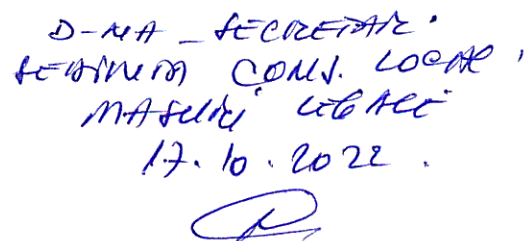 D-NA SECRETAR.
SEDINTA CONS. LOCAL,
MASURI LEGALE
17.10.2022.